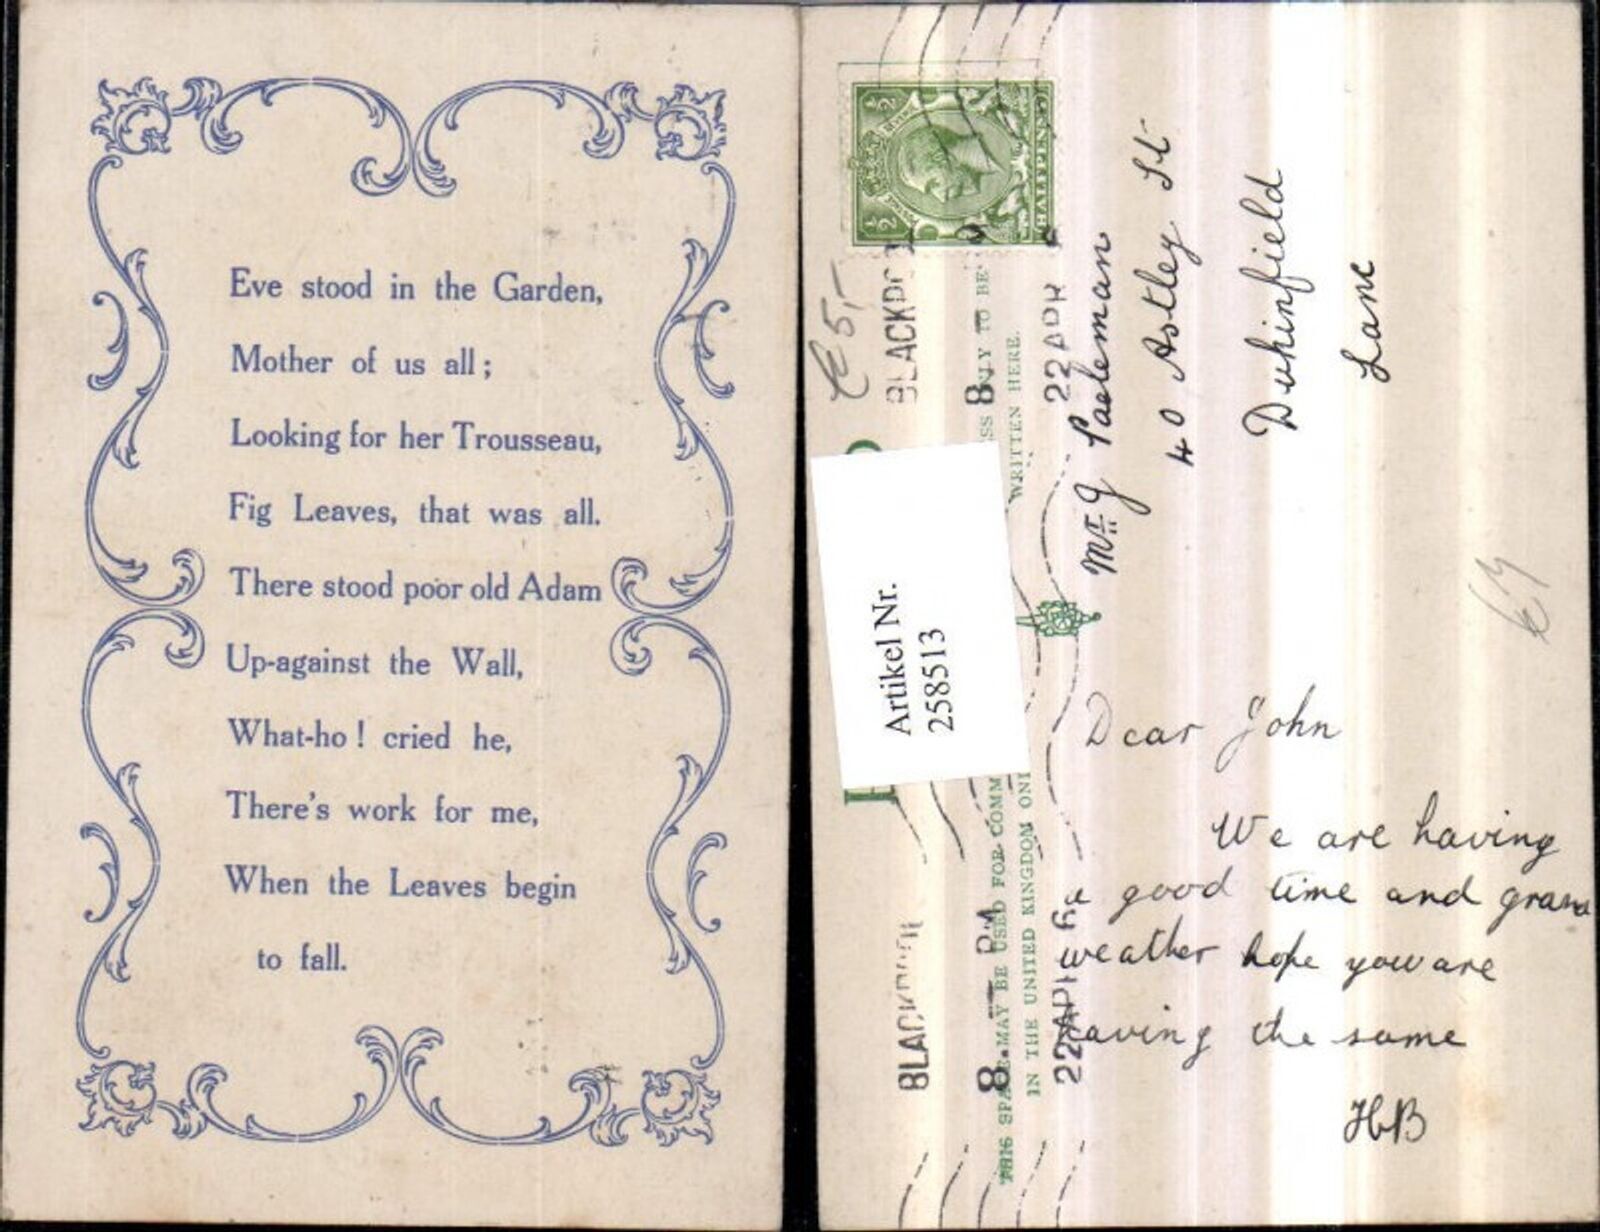 Eve stood in the Garden,
Mother of us all;
Looking for her Trousseau,
Fig Leaves, that was all.
There stood poor old Adam
Up-against the Wall,
What-ho! cried he,
There's work for me,
When the Leaves begin
to fall.
½ ½
HALFPENNY
€ 5,-
BLACKPO
8.
22 APR
WRITTEN HERE.
Artikel Nr.
258513
THIS SPACE MAY BE USED FOR COMM
IN THE UNITED KINGDOM ONL
8.- PM
22 AP
Mr J
40 Astley St
Dukinfield
Lanc
€7
Dear John
We are having
a good time and grand
weather hope you are
having the same
HB